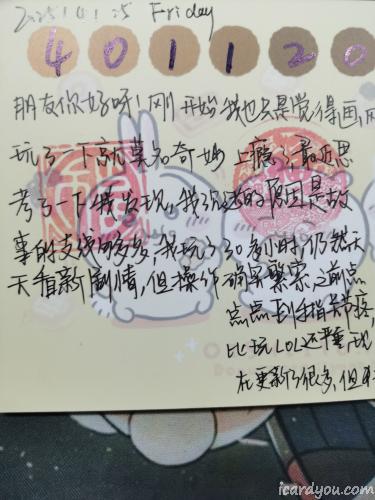 2025/4/25 Friday
4 0 1 1 2 0
朋友你好呀！刚开始我也只是觉得画风
玩了一下就莫名奇妙上瘾了，最近思
考了一下我发现，我沉迷的原因是故
事的支线够多，我玩了30多小时，仍然天
天看新剧情，但操作确实繁索，之前点
点点到手指关节疼，
比玩LOL还严重，现
在更新了很多，但
icardyou.com